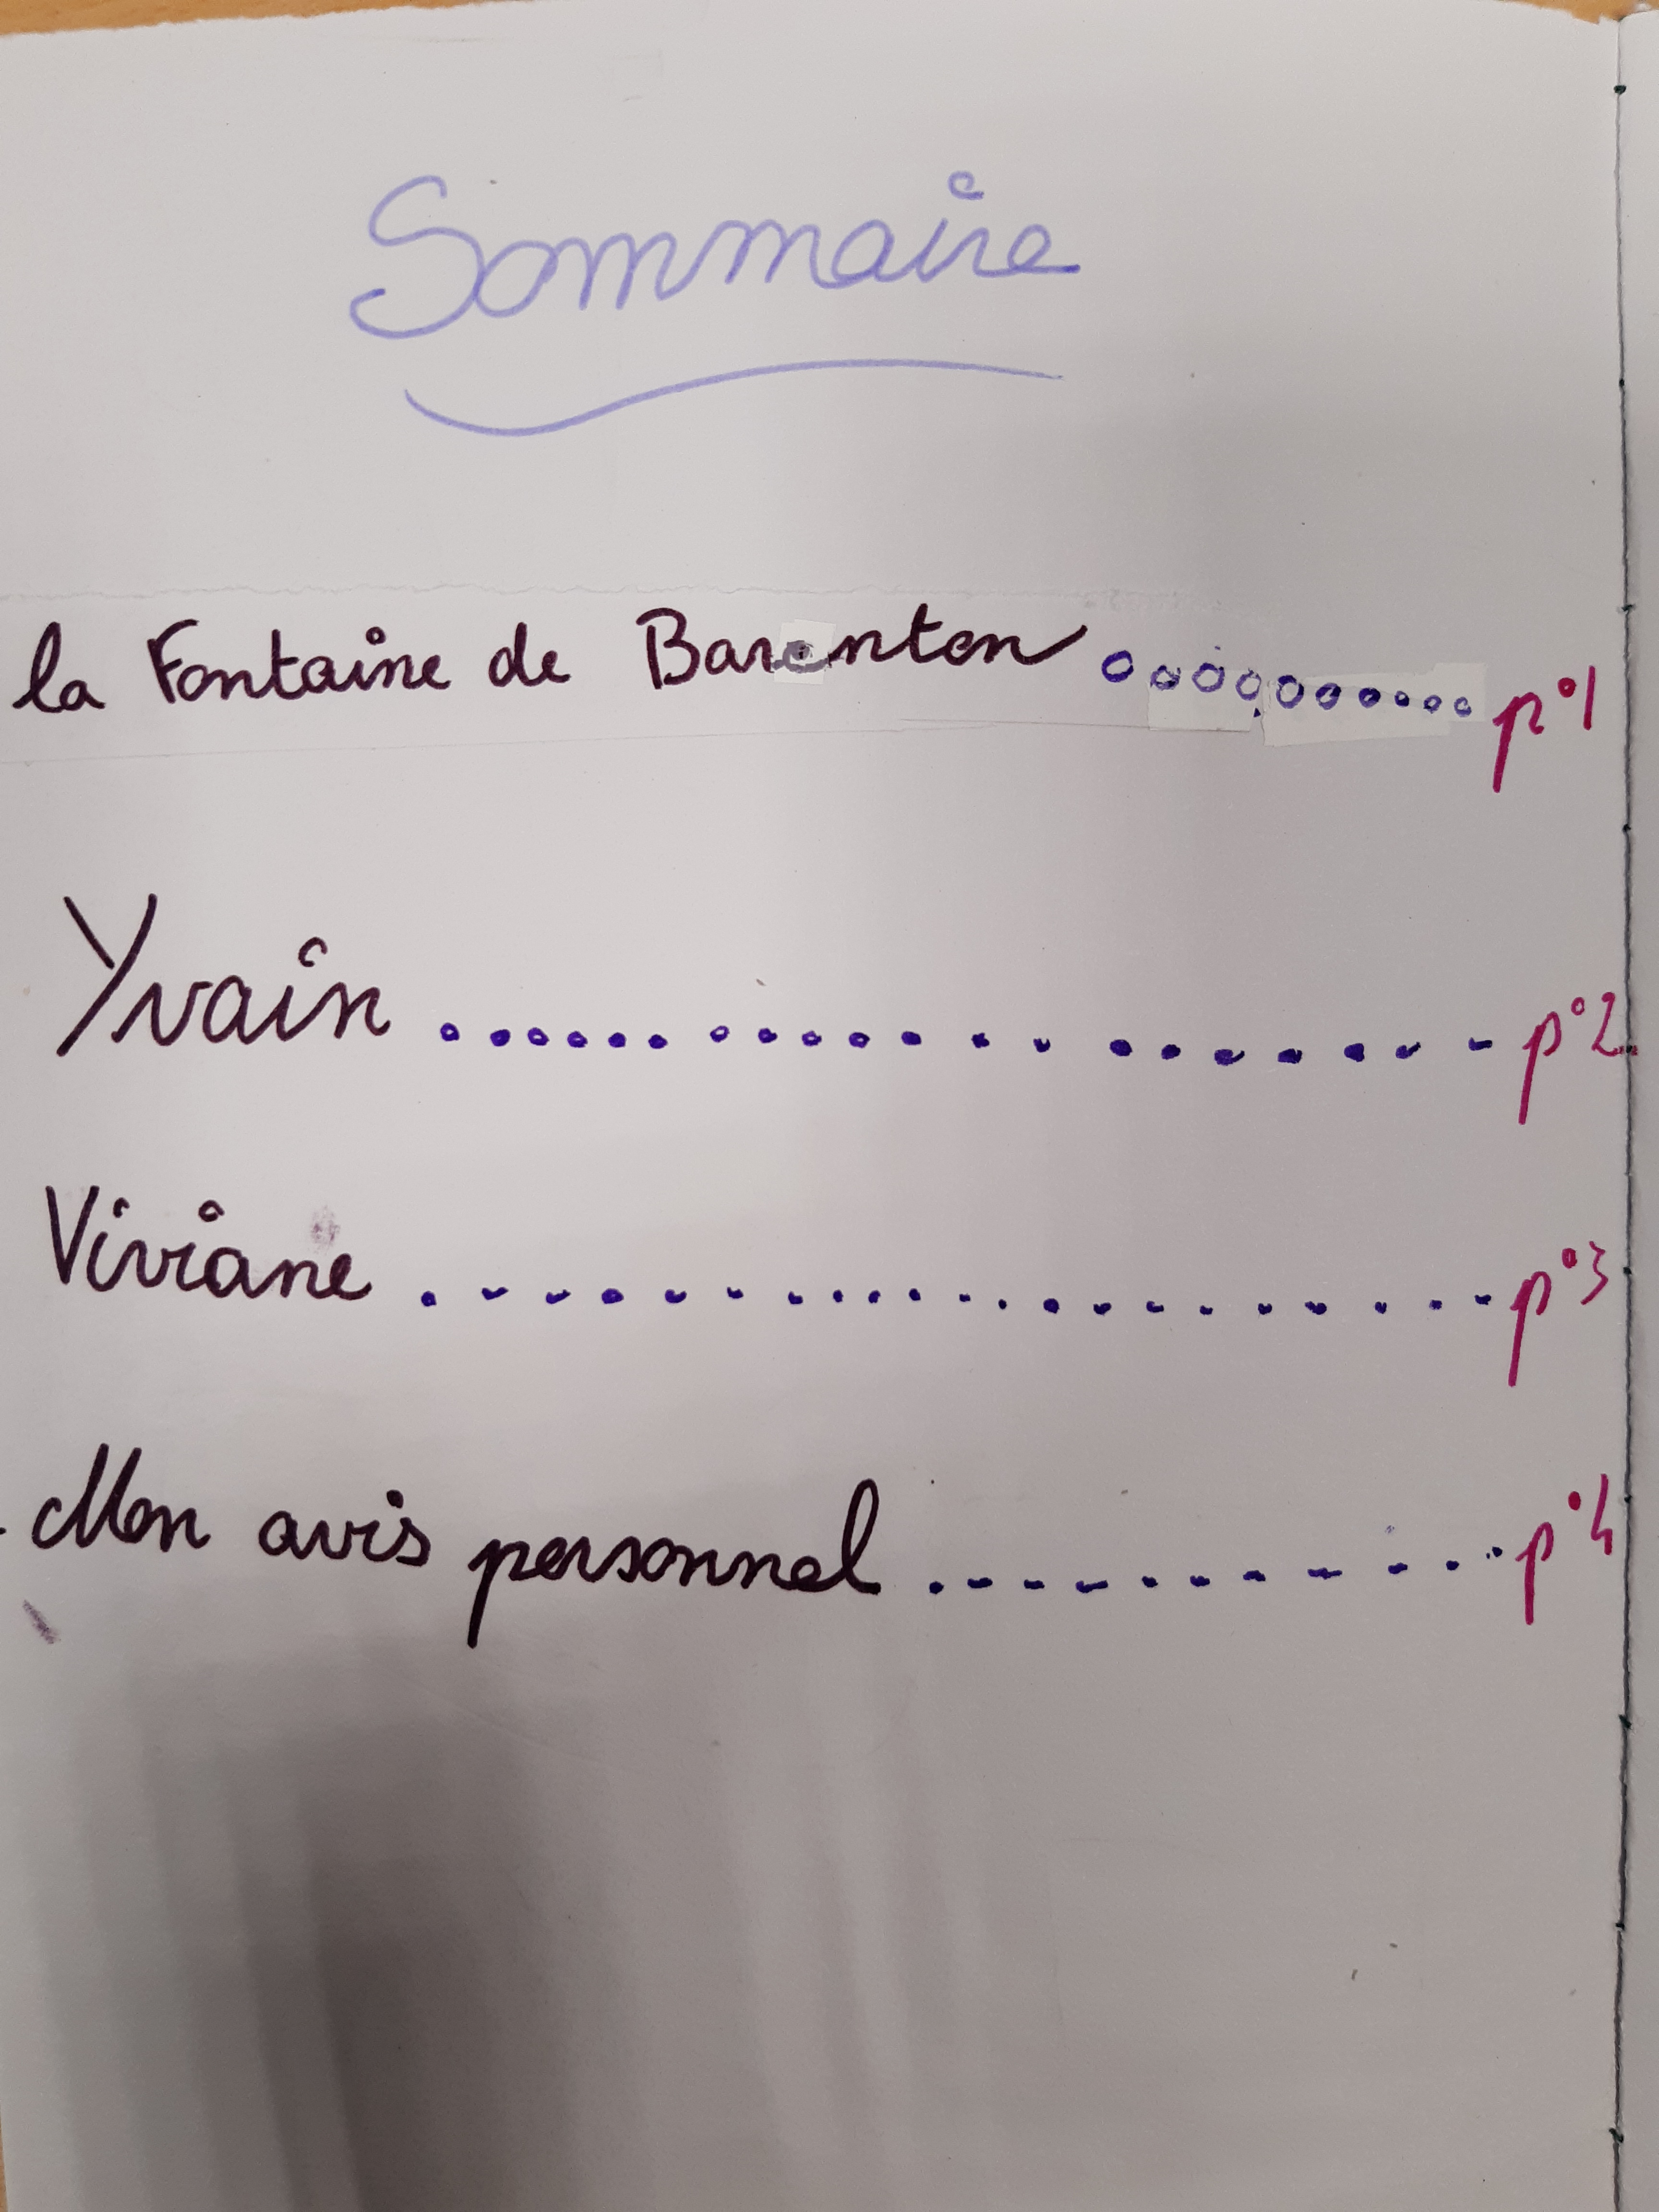 Sommaire
la Fontaine de Barenton ooooooooooo p°1
Yvain ........................ p°2
Viviane ........................ p°3
Mon avis personnel ............ p°4